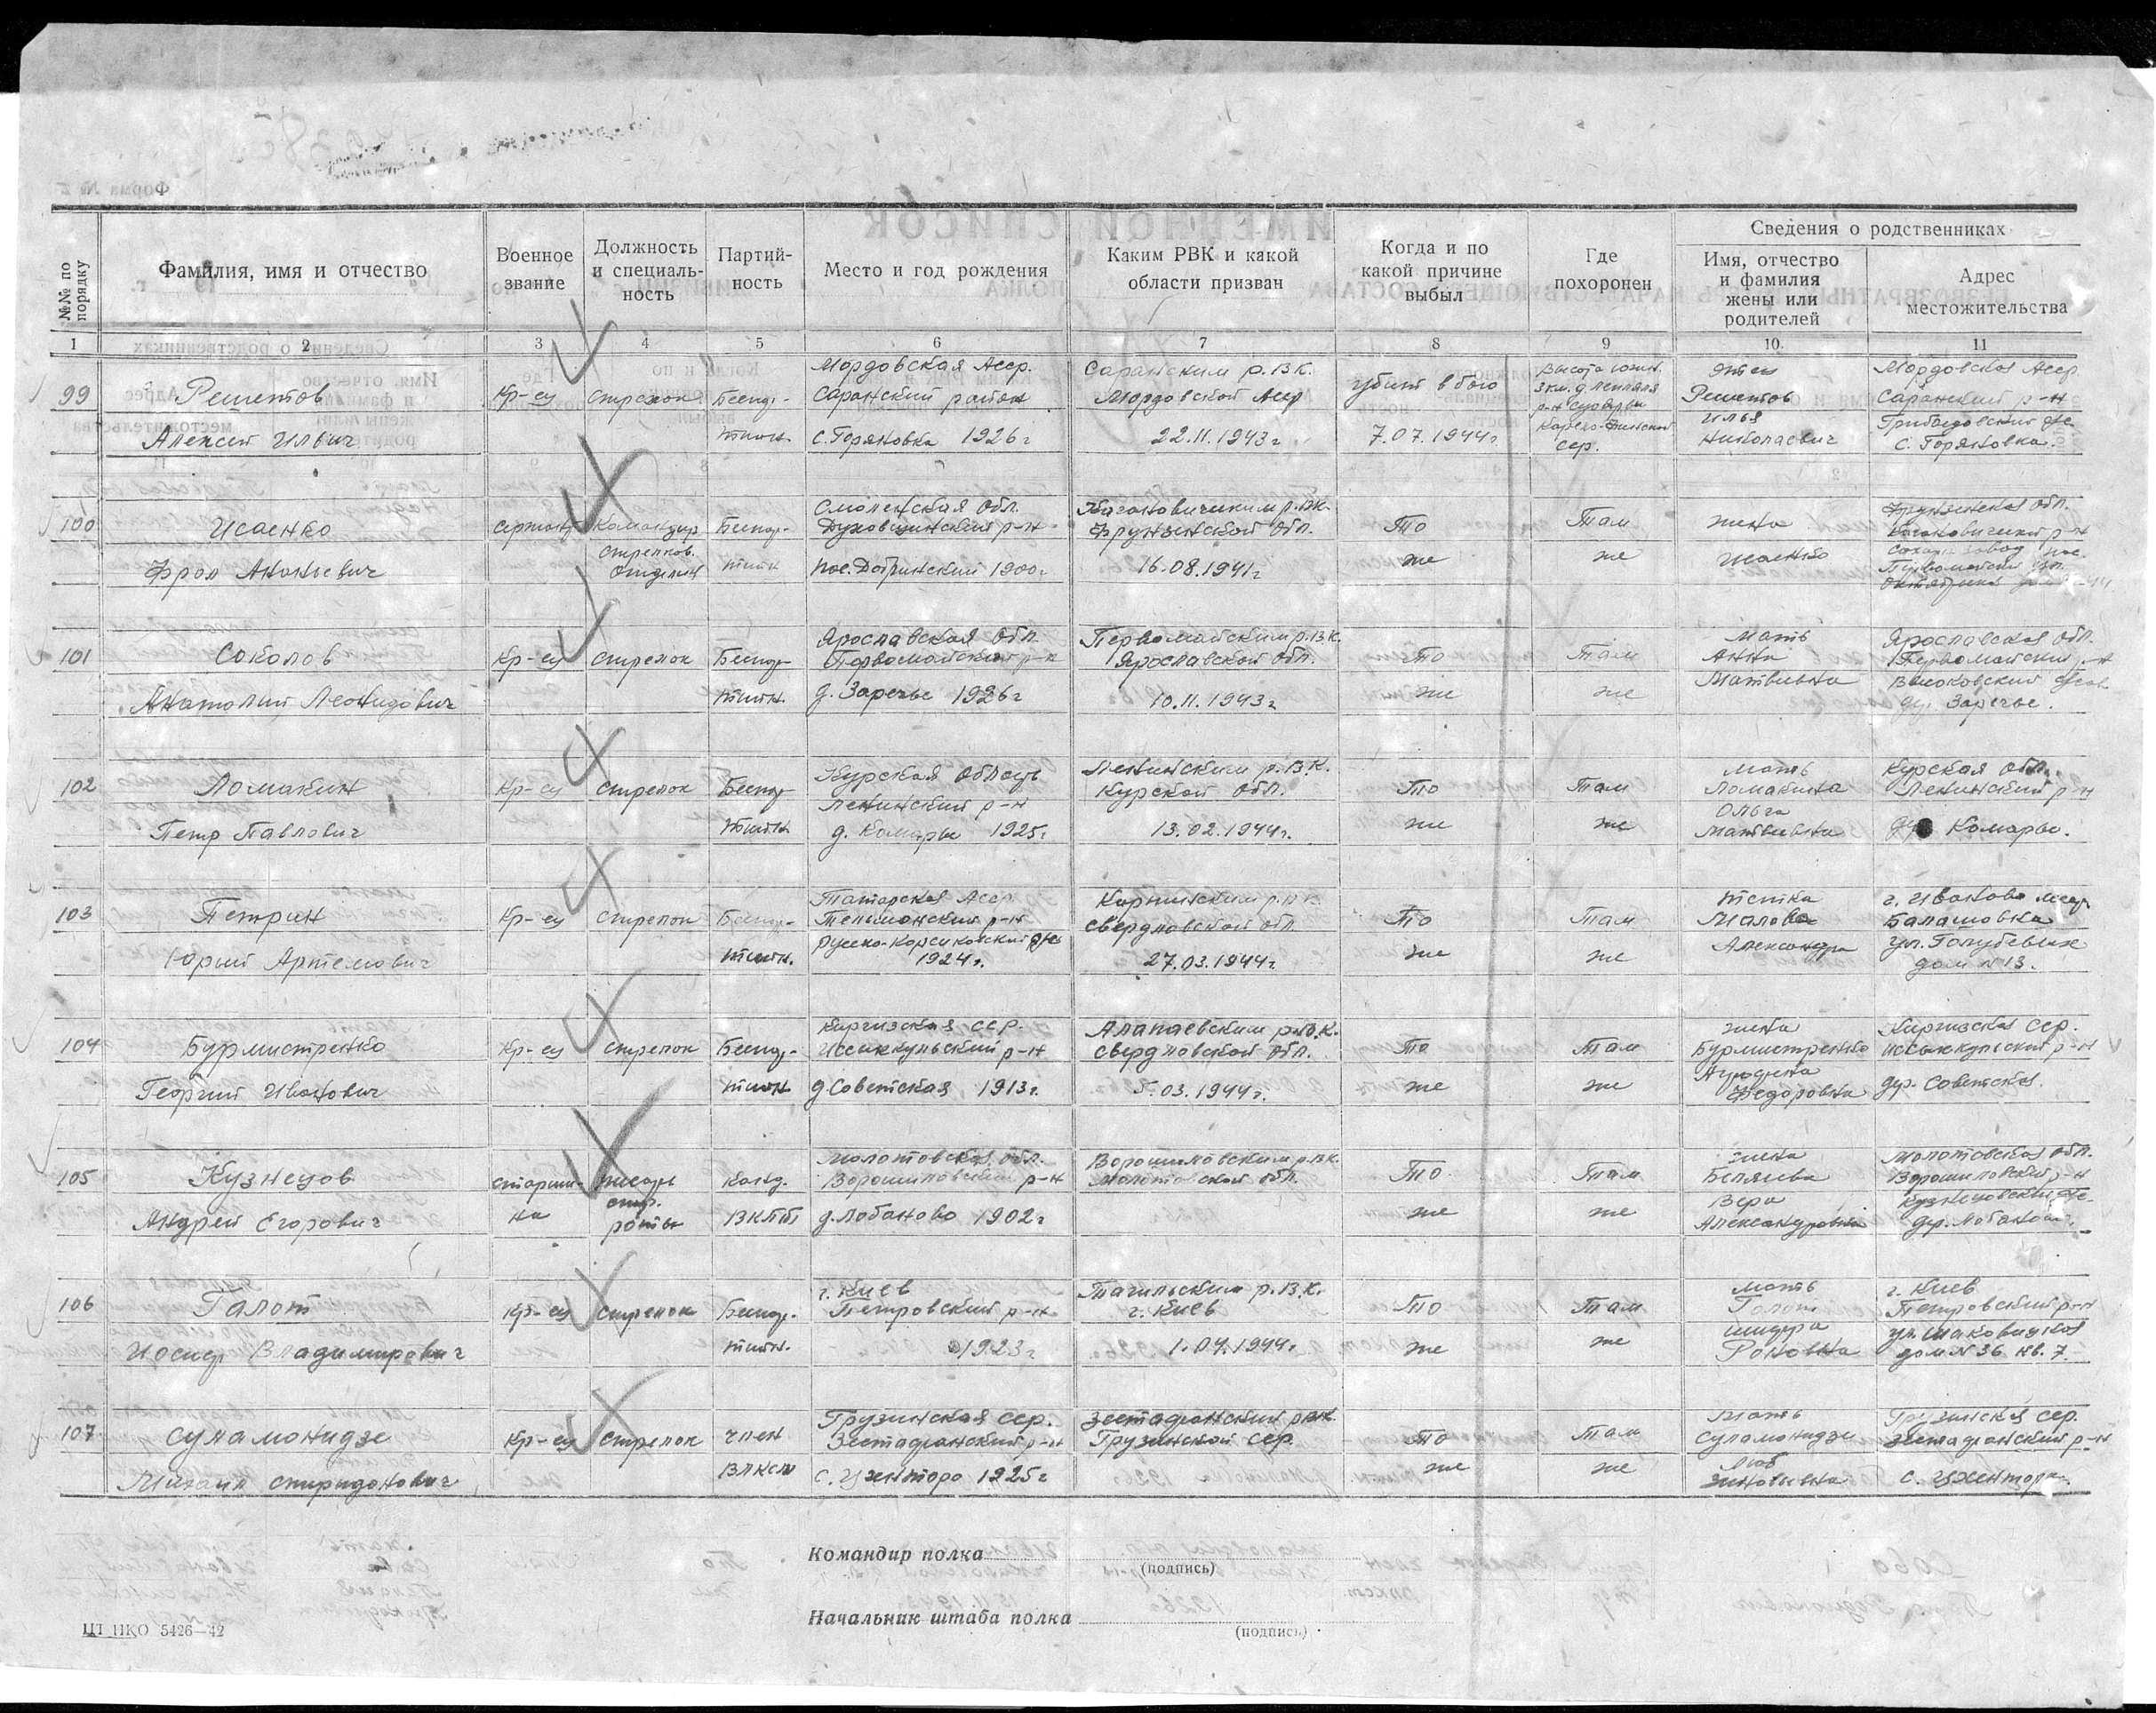 №№ по порядку
Фамилия, имя и отчество
Военное звание
Должность и специаль-ность
Партий-ность
Место и год рождения
Каким РВК и какой области призван
Когда и по какой причине выбыл
Где похоронен
Сведения о родственниках
Имя, отчество и фамилия жены или родителей
Адрес местожительства
1 2 3 4 5 6 7 8 9 10 11
99 Решетов Алексей Ильич
Кр-ец
стрелок
Беспар-тийн.
Мордовская Асср.
Саранский район
с. Горяновка 1926 г
Саранским р.В.К.
Мордовской Асср
22.11.1943 г
убит в бою
7.07.1944 г.
Высота южн.
3 км. д.
р-н
Карело-Финской
сср.
отец
Решетов
Илья
Николаевич
Мордовская Асср.
Саранский р-н
с. Горяновка.
100 Исаенко Фрол Ананьевич
сержант
Командир
стрелков.
отделен
Беспар-тийн
Смоленская обл.
Духовщинский р-н
пос. 1900 г
Кагановичиским р.В.К.
Фрунзенской обл.
16.08.1941 г
То же
Там же
жена
Исаенко
Фрунзенская обл.
Кагановический р-н
Сахарн завод пос.
101 Соколов Анатолий Леонидович
Кр-ец
стрелок
Беспар-тийн.
Ярославская обл.
Первомайский р-н
д. Заречье 1926 г
Первомайским р.В.К.
Ярославской обл.
10.11.1943 г
То же
Там же
мать
Анна
Матвеевна
Ярославская обл.
Первомайский р-н
дер. Заречье.
102 Ломакин Петр Павлович
Кр-ец
стрелок
Беспар-тийн
Курская область
Ленинский р-н
д. Комарье 1925 г
Ленинским р.В.К.
Курской обл.
13.02.1944 г.
То же
Там же
мать
Ломакина
Ольга
Матвеевна
Курская обл.
Ленинский р-н
дер Комарье.
103 Петрин Юрий Артемович
Кр-ец
стрелок
Беспар-тийн.
Татарская Асср
Тельманский р-н
1924 г.
Карпинским р.В.К.
Свердловской обл.
27.03.1944 г.
То же
Там же
тетка
Малова
Александра
г. Иваново
Балашовка
дом №13.
104 Бурмистренко Георгий Иванович
Кр-ец
стрелок
Беспар-тийн
Киргизская сср.
Иссыккульский р-н
д Советская 1913 г.
Алапаевским р.В.К.
Свердловской обл.
5.03.1944 г.
То же
Там же
жена
Бурмистренко
Федоровна
Киргизская сср.
Иссыккульский р-н
дер. Советская.
105 Кузнецов Андрей Егорович
старши-на
писарь
стр.
роты
канд.
ВКПб
Молотовская обл.
Ворошиловский р-н
д. Лобаново 1902 г
Ворошиловским р.В.К.
Молотовской обл.
То же
Там же
жена
Беляева
Вера
Александровна
Молотовская обл.
Ворошиловский р-н
дер. Лобаново.
106 Галот Иосиф Владимирович
Кр-ец
стрелок
Беспар-тийн.
г. Киев
Петровский р-н
1923 г
Тагильским р.В.К.
г. Киев
1.04.1944 г.
То же
Там же
мать
г. Киев
Петровский р-н
дом №36 кв. 7.
107 Суламонидзе Михаил Спиридонович
Кр-ец
стрелок
член
ВЛКСМ
Грузинская сср.
Зестафонский р-н
1925 г
Зестафонский р.В.К.
Грузинской сср.
То же
Там же
мать
Суламонидзе
Зиновьевна
Грузинская сср.
Зестафонский р-н
Командир полка
(подпись)
Начальник штаба полка
(подпись)
ЦТ НКО 5426—42